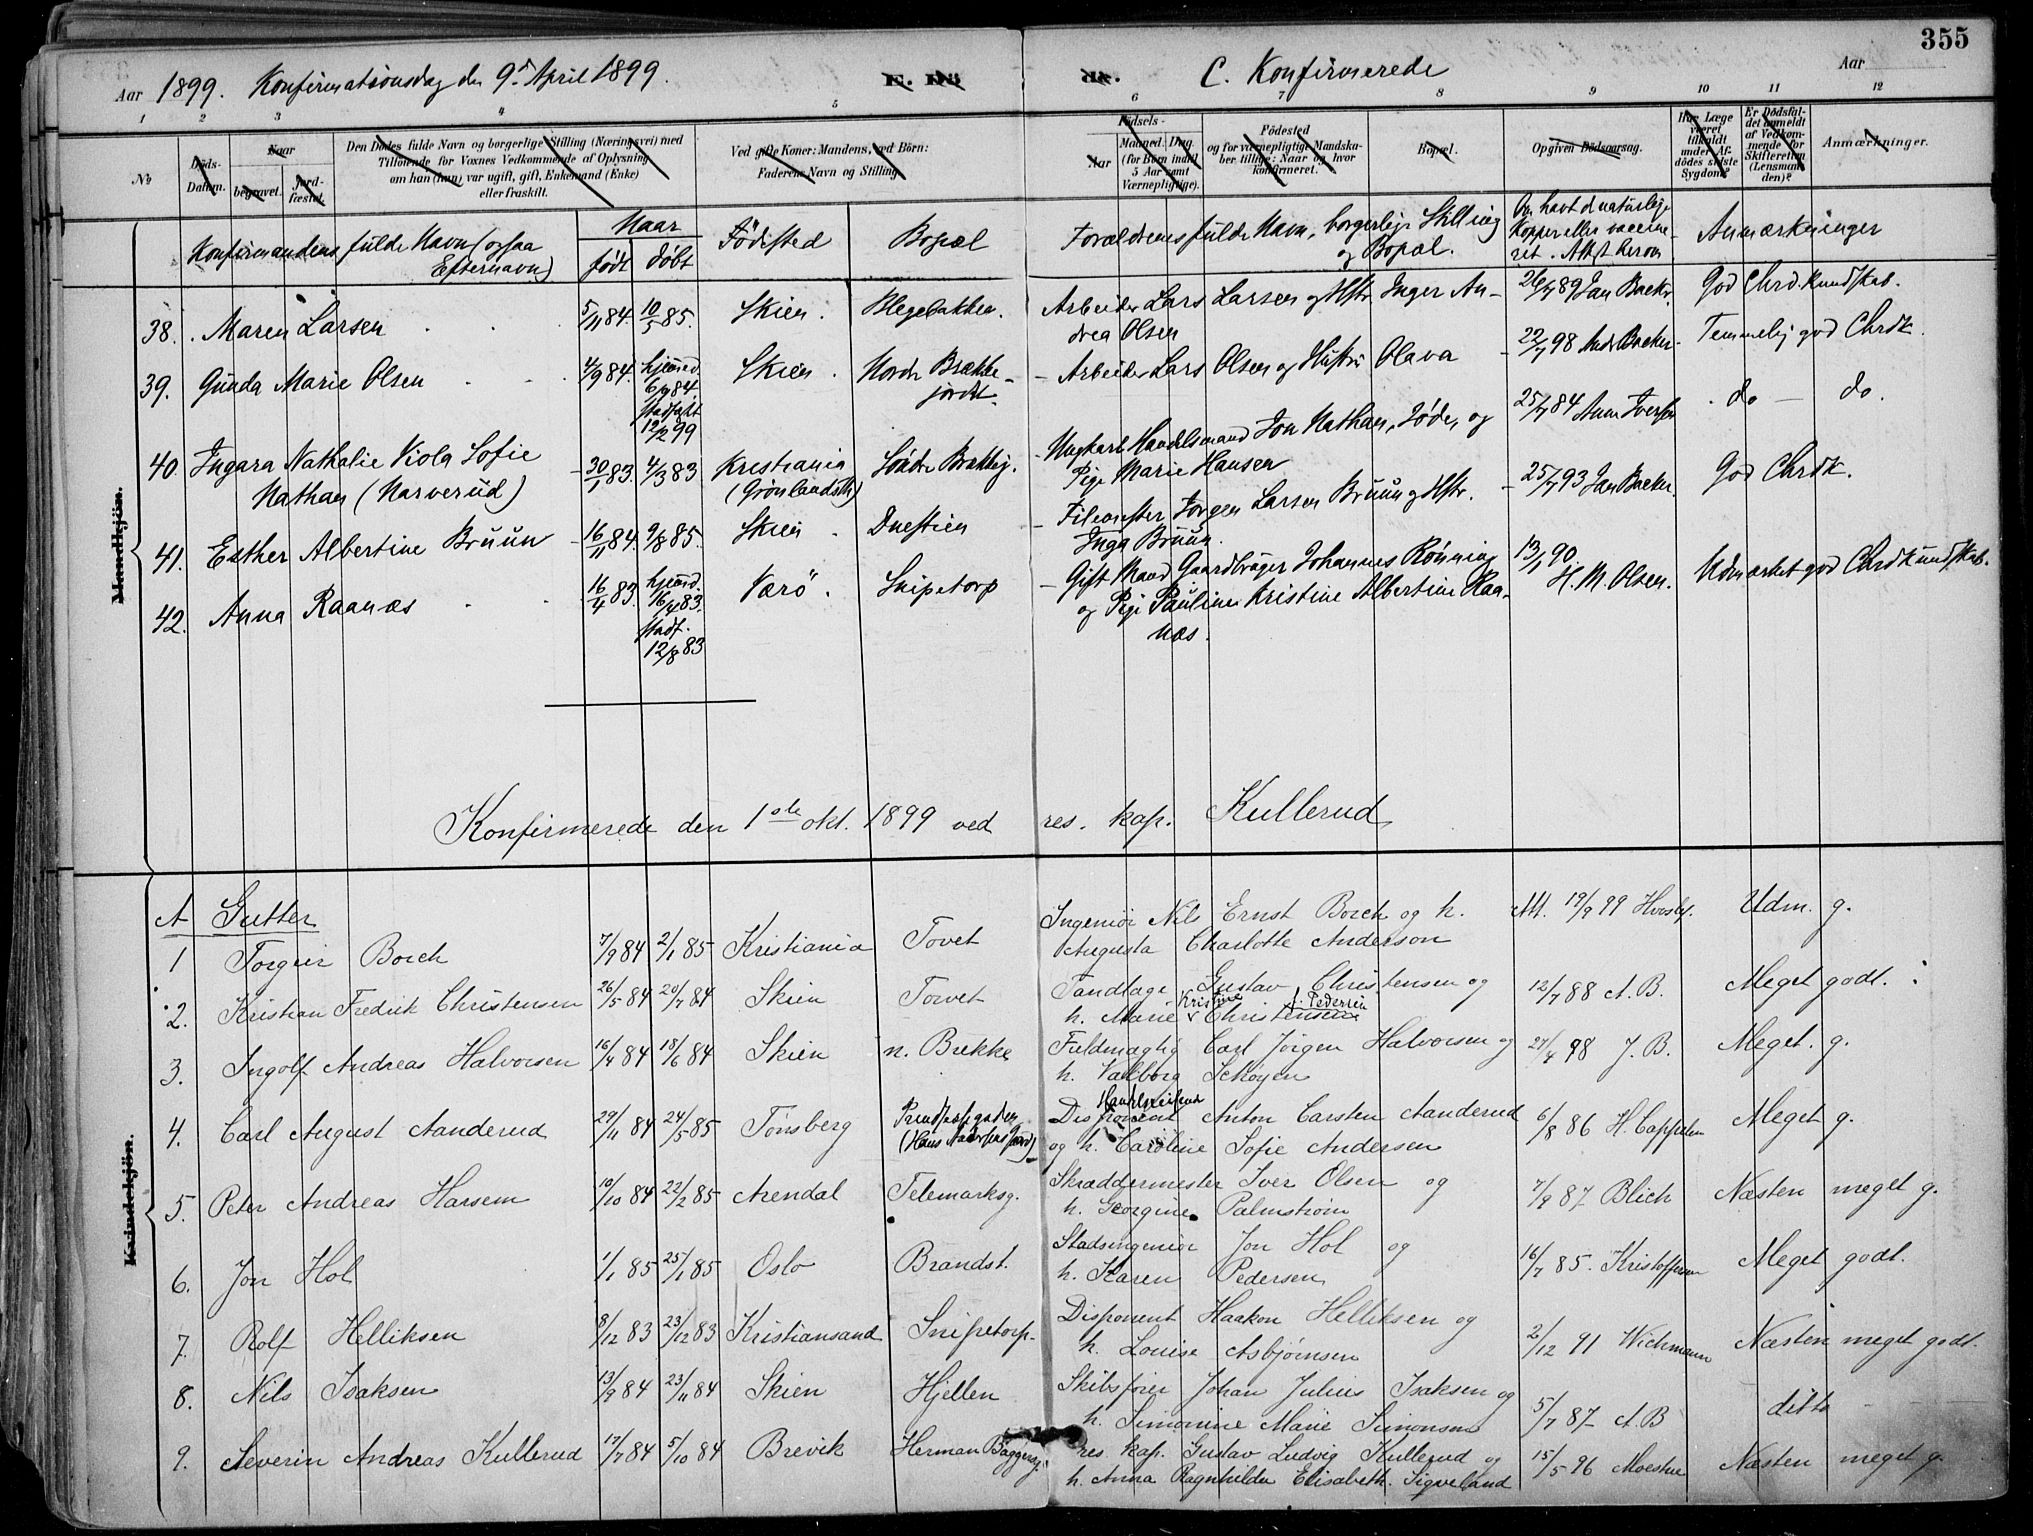 355
Aar 1899. Konfirmationsdag den 9de April 1899. C. Konfirmerede Aar
1 2 3 4 5 6 7 8 9 10 11 12
№
Døds-Datum.
Naar
begravet. Jord-fæstet.
Den Dødes fulde Navn og borgerlige Stilling (Næringsvei) med
Tilføiende for Voxnes Vedkommende af Oplysning
om han (hun) var ugift, gift, Enkemand (Enke)
eller fraskilt.
Ved gifte Koner: Mandens, ved Børn:
Faderens Navn og Stilling.
Fødsels-
Aar Maaned. Dag.
(for Børn indtil
5 Aar samt
Værnepligtige).
Fødested
og for værnepligtige Mandska-
ber tillige: Naar og hvor
konfirmeret.
Bopæl.
Opgiven Dødsaarsag.
Har Læge
været
tilkaldt
under Af-
dødes sidste
Sygdom?
Er Dødsfal-
det anmeldt
af Vedkom-
mende for
Skifteretten
(Lensman-
den)?
Anmærkninger.
Konfirmandens fulde Navn (ogsaa
Efternavn)
Naar
født døbt
Fødested Bopæl
Forældrenes fulde Navn, borgerlige Stilling
og Bopæl.
Om havt de naturlige
Kopper eller vaccine-
ret. Attest herom
Anmærkninger
Mandkjön.
38. Maren Larsen 5/11 84. 10/5 85. Skien. Blegebakken. Arbeider Lars Larsen og Hstr. Inger An- 26/7 89 Jan Backer God Chrd.kundskab.
drea Olsen
39. Gunda Marie Olsen 4/9 84. hjemmed. Skien. Nordre Brække- Arbeider Lars Olsen og Hustru Olava 22/7 98 Andr Backer Temmelig god Chrdk.
6/9 84. jordet.
stadfæst
12/2 99
40. Ingara Nathalie Viola Sofie 30/1 83. 4/3 83 Kristiania Søndre Brækkej. Ungkarl Handelsmand Jon Nathan, Jøde, og 25/7 84 Anne Iversen do — do.
Nathan (Narverud) (Grønlandsth) Pige Marie Hansen
41. Esther Albertine Bruun 16/11 84. 9/8 85. Skien. Duestien Filemester Jørgen Larsen Bruun og Hstr. 25/7 93 Jan Backer. God Chrdk.
Inga Bruun.
42. Anna Raanæs 16/4 83. hjemmed. Værö. Snipetorp Gift Mand Gaardbruger Johannes Rönning 13/1 90. Udmærket god Chrdkundskab.
16/4 83. og Pige Pauline Kristine Albertine Raa- H. M. Olsen.
stadf. næs.
12/8 83
Konfirmerede den 1ste okt. 1899 ved res. kap. Kullerud
Kvindekjön.
A Gutter
1 Torgeir Borch 7/9 84 2/1 85 Kristiania Torvet Ingeniör Nils Ernst Borch og h. Att. 19/9 99 Udm. g.
Augusta Charlotte Anderson
2. Kristian Fredrik Christensen 26/5 84 20/7 84 Skien Torvet Tandlæge Gustav Christensen og 12/7 88 A.B. Meget godt.
h. Marie Kristine Christensen f. Pedersen
3. Ingolf Andreas Halvorsen 16/4 84 18/6 84 Skien n. Brekke Fuldmægtig Carl Jörgen Halvorsen og 27/4 98 J. B. Meget. g.
h. Valborg Schøyen
4. Carl August Aanderud 29/11 84 24/5 85 Tönsberg Prindsensgaden Disponent Handelsreisende Anton Carsten Aanderud 6/8 86 H. Cappelen Meget g.
og h. Caroline Sofie Andersen
5. Peter Andreas Harsem 10/10 84 22/2 85 Arendal Telemarksg. Skræddermester Iver Olsen og 7/9 87 Blich Næsten meget g.
h. Georgine Palmström
6. Jon Hol 1/1 85 25/1 85 Oslo Brandst. Stadsingeniör Jon Hol og 16/7 85. Kristoffersen Meget godt.
h. Karen Pedersen
7. Rolf Helliksen 8/12 83 23/12 83 Kristiansand Snipetorp. Disponent Haakon Helliksen og 2/12 91 Wichmann Næsten meget godt.
h. Louise Asbjörnsen
8. Nils Isaksen 13/9 84 23/11 84 Skien Hjellen Skibsförer Johan Julius Isaksen og 5/7 87 A.B ditto
h. Simonine Marie Simonsen
9. Severin Andreas Kullerud 17/7 84 5/10 84 Brevik Herman Baggersg. res. kap. Gustav Ludvig Kullerud og 15/5 96 Moestue Næsten meget g.
h. Anna Ragnhilda Elisabeth Sigveland